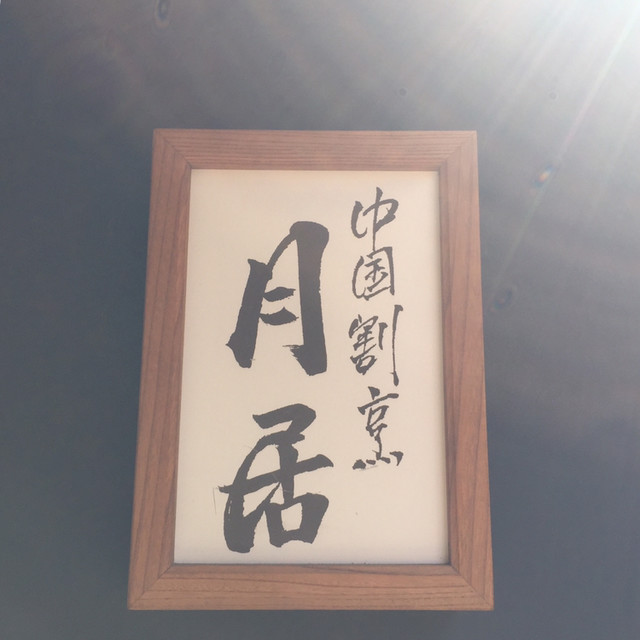 中国割烹
月居